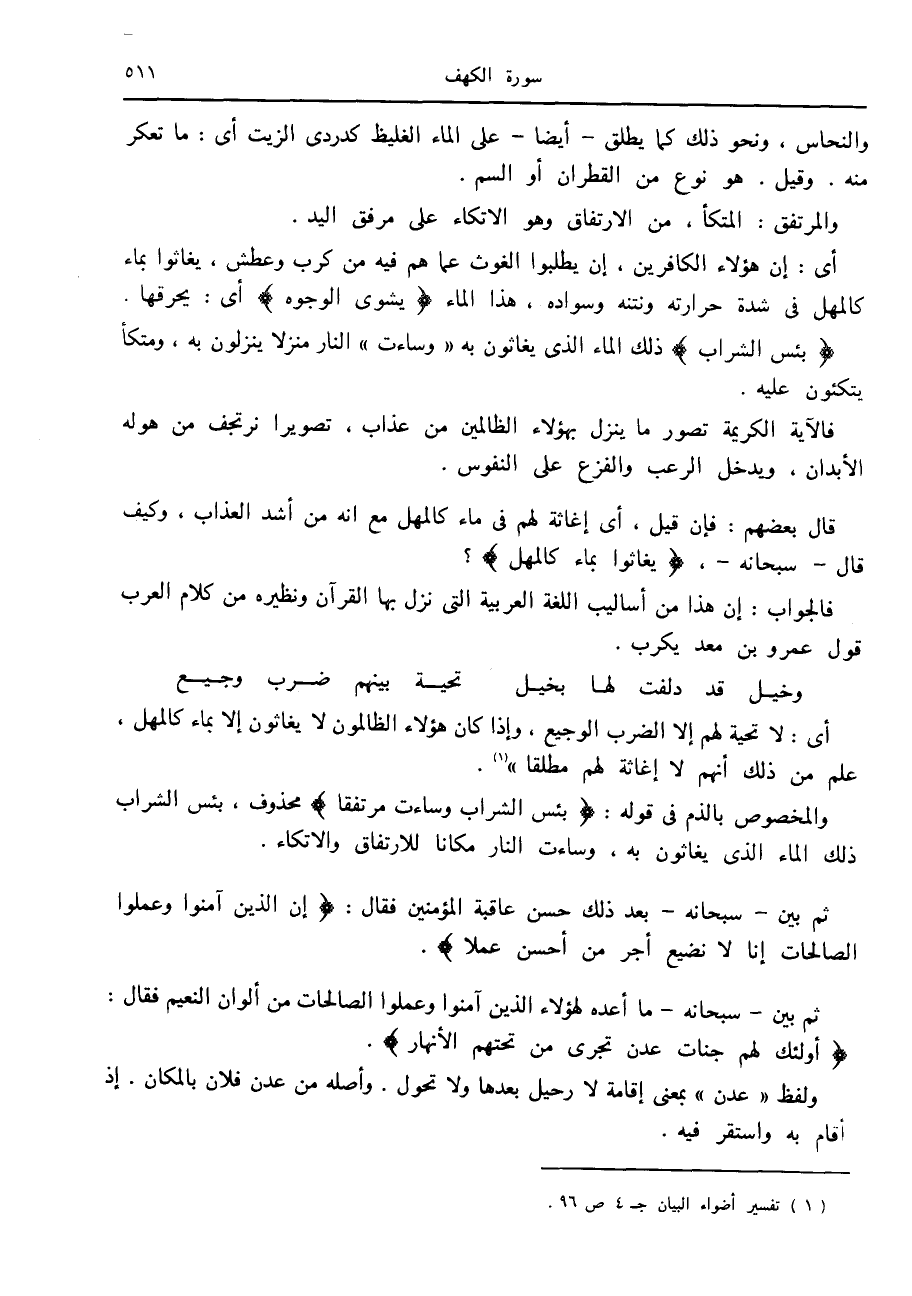 سورة الكهف ٥١١
والنحاس ، ونحو ذلك كما يطلق – أيضا – على الماء الغليظ كدردى الزيت أى : ما تعكر
منه . وقيل . هو نوع من القطران أو السم .
والمرتفق : المتكأ ، من الارتفاق وهو الاتكاء على مرفق اليد .
أى : إن هؤلاء الكافرين ، إن يطلبوا الغوث عما هم فيه من كرب وعطش ، يغاثوا بماء
كالمهل فى شدة حرارته ونتنه وسواده ، هذا الماء ﴿ يشوى الوجوه ﴾ أى : يحرقها .
﴿ بئس الشراب ﴾ ذلك الماء الذى يغاثون به « وساءت » النار منزلا ينزلون به ، ومتكأ
يتكئون عليه .
فالآية الكريمة تصور ما ينزل بهؤلاء الظالمين من عذاب ، تصويرا نرتجف من هوله
الأبدان ، ويدخل الرعب والفزع على النفوس .
قال بعضهم : فإن قيل ، أى إغاثة لهم فى ماء كالمهل مع انه من أشد العذاب ، وكيف
قال – سبحانه – ، ﴿ يغاثوا بماء كالمهل ﴾ ؟
فالجواب : إن هذا من أساليب اللغة العربية التى نزل بها القرآن ونظيره من كلام العرب
قول عمرو بن معد يكرب .
وخيـل قد دلفت لهـا بخيـل تحيـة بينهم ضـرب وجـيـع
أى : لا تحية لهم إلا الضرب الوجيع ، وإذا كان هؤلاء الظالمون لا يغاثون إلا بماء كالمهل ،
علم من ذلك أنهم لا إغاثة لهم مطلقا »(١) .
والمخصوص بالذم فى قوله : ﴿ بئس الشراب وساءت مرتفقا ﴾ محذوف ، بئس الشراب
ذلك الماء الذى يغاثون به ، وساءت النار مكانا للارتفاق والاتكاء .
ثم بين – سبحانه – بعد ذلك حسن عاقبة المؤمنين فقال : ﴿ إن الذين آمنوا وعملوا
الصالحات إنا لا نضيع أجر من أحسن عملا ﴾ .
ثم بين – سبحانه – ما أعده لهؤلاء الذين آمنوا وعملوا الصالحات من ألوان النعيم فقال :
﴿ أولئك لهم جنات عدن تجرى من تحتهم الأنهار ﴾ .
ولفظ « عدن » بمعنى إقامة لا رحيل بعدها ولا تحول . وأصله من عدن فلان بالمكان . إذ
أقام به واستقر فيه .
( ١ ) تفسير أضواء البيان جـ ٤ ص ٩٦ .